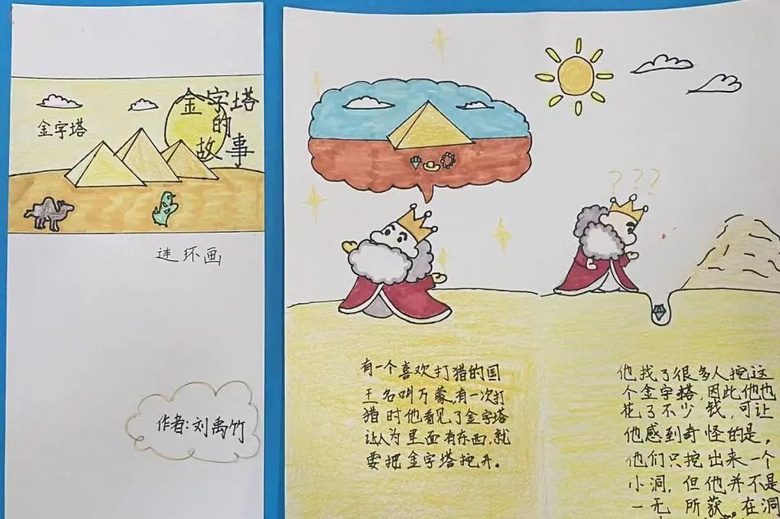 金字塔
的
故事
金字塔
连环画
作者:刘禹竹
???
有一个喜欢打猎的国
王名叫万蒙,有一次打
猎时他看见了金字塔
认为里面有东西,就
要把金字塔挖开。
他找了很多人挖这
个金字塔,因此他也
花了不少钱,可让
他感到奇怪的是,
他们只挖出来一个
小洞,但他并不是
一无所获,在洞